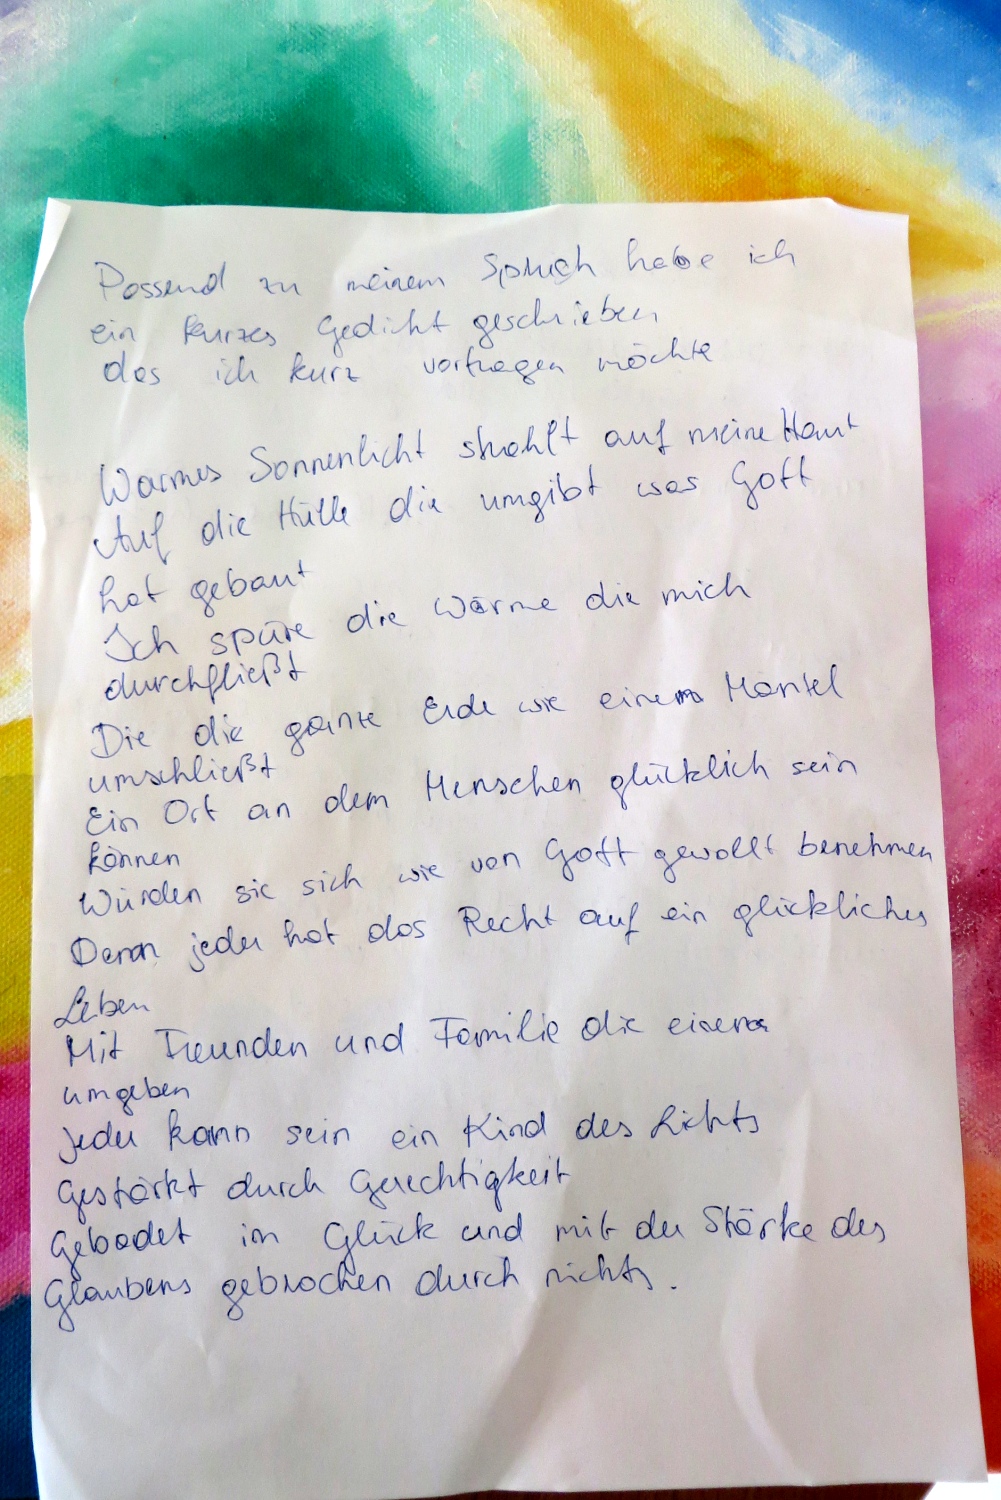 Passend zu meinem Spruch habe ich
ein kurzes Gedicht geschrieben
das ich kurz vortragen möchte
Warmes Sonnenlicht strahlt auf meine Haut
Auf die Hülle die umgibt was Gott
hat gebaut
Ich spüre die Wärme die mich
durchfließt
Die die ganze Erde wie einem Mantel
umschließt
Ein Ort an dem Menschen glücklich sein
können
Würden sie sich wie von Gott gewollt benehmen
Denn jeder hat das Recht auf ein glückliches
Leben
Mit Freunden und Familie die einem
umgeben
jeder kann sein ein Kind des Lichts
Gestärkt durch Gerechtigkeit
Gebadet im Glück und mit der Stärke des
Glaubens gebrochen durch nichts.